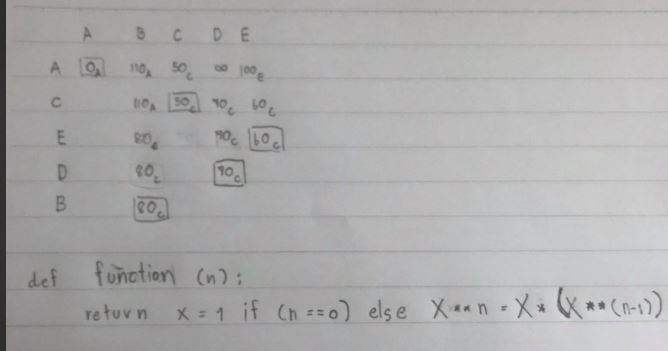 A B C D E
A 0A 110A 50C ∞ 100E
C 110A 50C 90C 60C
E 80E 90C 60C
D 80C 90C
B 80C
def function (n):
return x = 1 if (n == 0) else X ** n = X * (X ** (n-1))